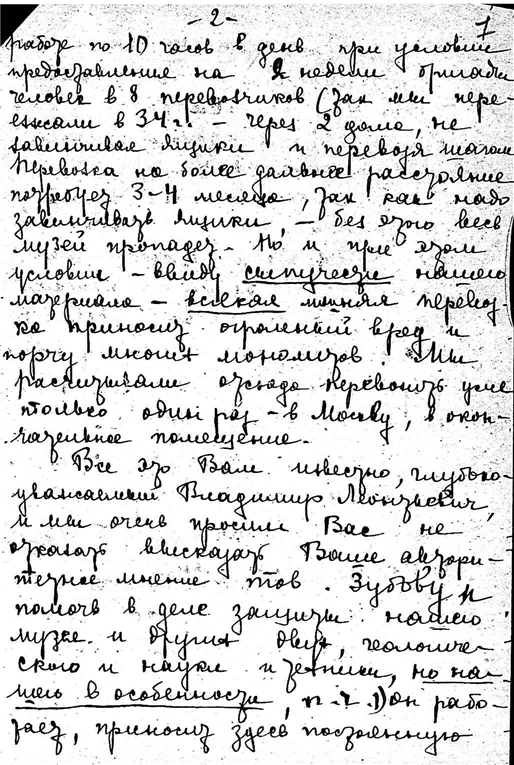 - 2 -
7
работе по 10 часов в день при условии
предоставления на 2 недели бригады
человек в 8 перевозчиков (так мы пере-
езжали в 34 г. - через 2 дома, не
завинчивая ящики и перевозя шагом
Перевозка на более дальнее расстояние
потребует 3-4 месяца, так как надо
завинчивать ящики, - без этого весь
музей пропадет. Но и при этом
условии - ввиду сыпучести нашего
материала - всякая лишняя перевоз-
ка приносит огромный вред и
порчу многих монолитов. Мы
рассчитывали отсюда перевозить уже
только один раз - в Москву, в окон-
чательное помещение.
Все это Вам известно, глубоко-
уважаемый Владимир Леонтьевич,
и мы очень просим Вас не
отказать высказать Ваше автори-
тетное мнение тов. Зубову и
помочь в деле защиты нашего
музея и других двух, геологиче-
ского и науки и техники, но на-
шего в особенности, п.ч. 1) он рабо-
тает, приносит здесь постоянную